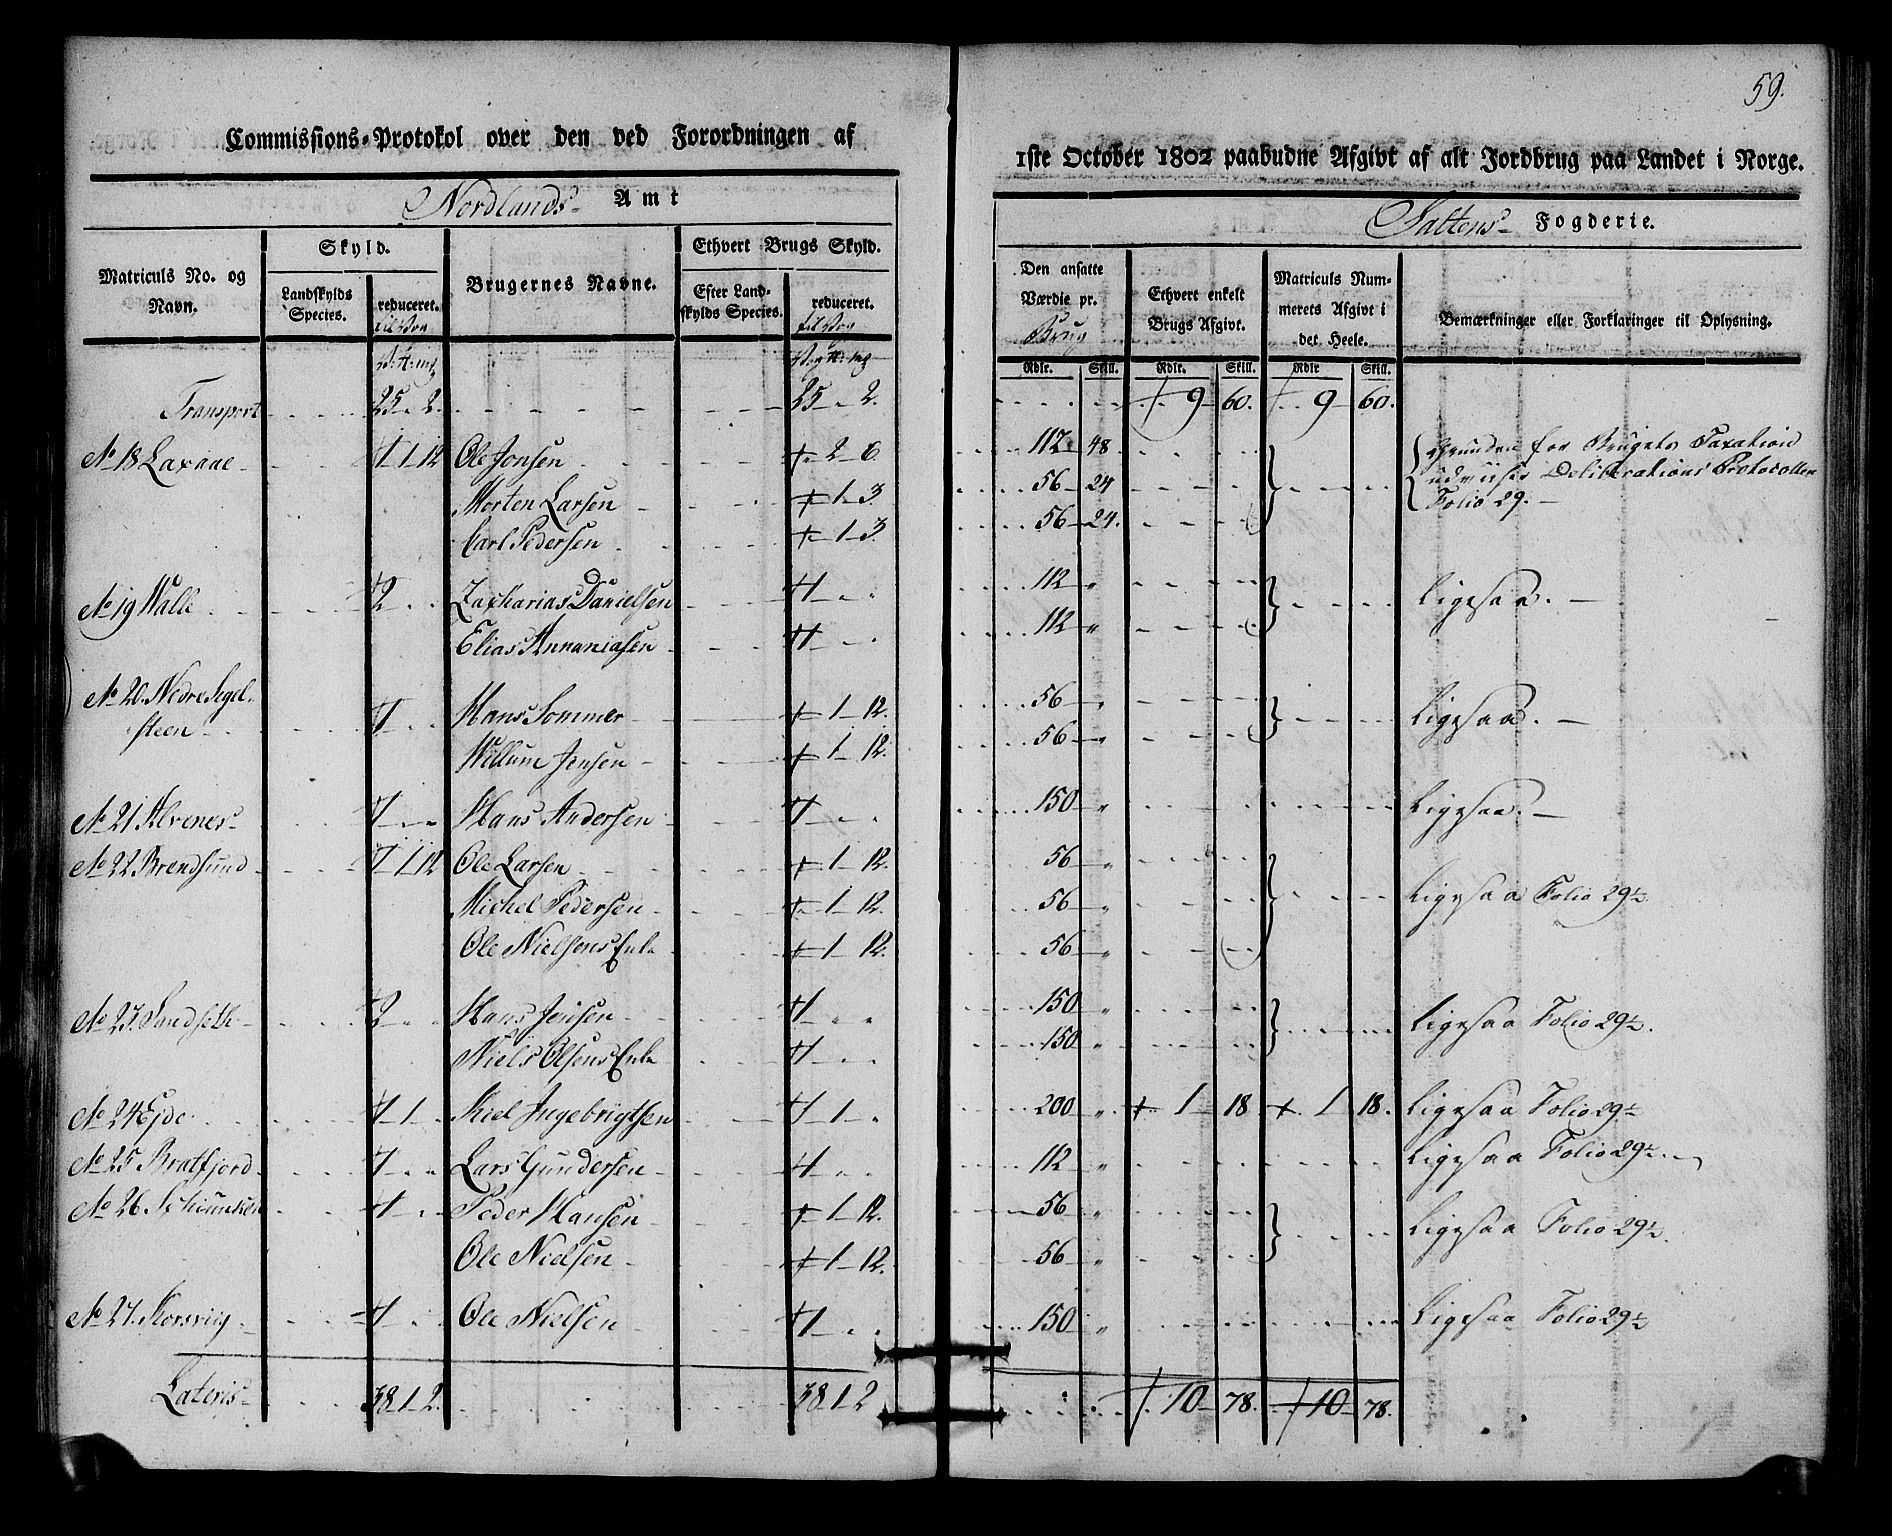 59.
Commissions-Protokol over den ved Forordningen af
1ste October 1802 paabudne Afgivt af alt Jordbrug paa Landet i Norge.
Nordlands Amt
Saltens Fogderie.
Matriculs No. og Navn.
Skyld.
Landskylds Species.
reduceret.
Brugernes Navne.
Ethvert Brugs Skyld.
Efter Landskylds Species.
reduceret.
Den ansatte Værdie pr. Brug
Ethvert enkelt Brugs Afgivt.
Matriculs Nummerets Afgivt i det Heele.
Bemærkninger eller Forklaringer til Oplysning.
Rdlr. Skill. Rdlr. Skill. Rdlr Skill.
Transport 25 - 2. 25 - 2. 9 - 60. 9 - 60.
No 18 Laxaae - 1 - 1 - 12 Ole Jonsen - 2 - 6. 112 - 48 Grunden for Brugets Taxation
Morten Larsen - 1 - 3. 56 - 24 udviiser Deliberations Protocollen
Carl Pedersen 1 - 3. 56 - 24. Folio 29. -
No 19 Walle 2 Zacharias Danielsen 1 112 " Ligesaa. -
Elias Annaniasen 1 112 "
No 20. Nedre Segel-
steen - 1 Hans Sommer 1 - 12. 56 " Ligesaa. -
Willum Jensen - 1 - 12. 56 - "
No 21 Alvenes - 1 Hans Andersen 1 150 " Ligesaa. -
No 22 Brendsund 1 - 1 - 12 Ole Larsen 1 - 12. 56 " Ligesaa Folio 29½.
Michel Pedersen - 1 - 12. 56 - "
Ole Nielsens Enke 1 - 12. 56 "
No 23. Sandseth - 2 Hans Jensen 1 150 " Ligesaa Folio 29½.
Niels Olsens Enke 1 150 "
No 24 Ejde 1 - 1 Kiel Ingebrigtsen 1 - 1 200 " 1 - 18 1 18. Ligesaa Folio 29½
No 25 Bratfjord - 1 Lars Gundersen 1 112 " Ligesaa Folio 29½.
No 26 1 Peder Hansen 1 - 12. 56 " Ligesaa Folio 29½.
Ole Nielsen 1 - 12. 56 "
No 27. Korsviig 1 Ole Nielsen 1 150 " Ligesaa Folio 29½
Lateris - 38 - 1 - 2. 38 - 1 - 2 10 - 78. 10 - 78.